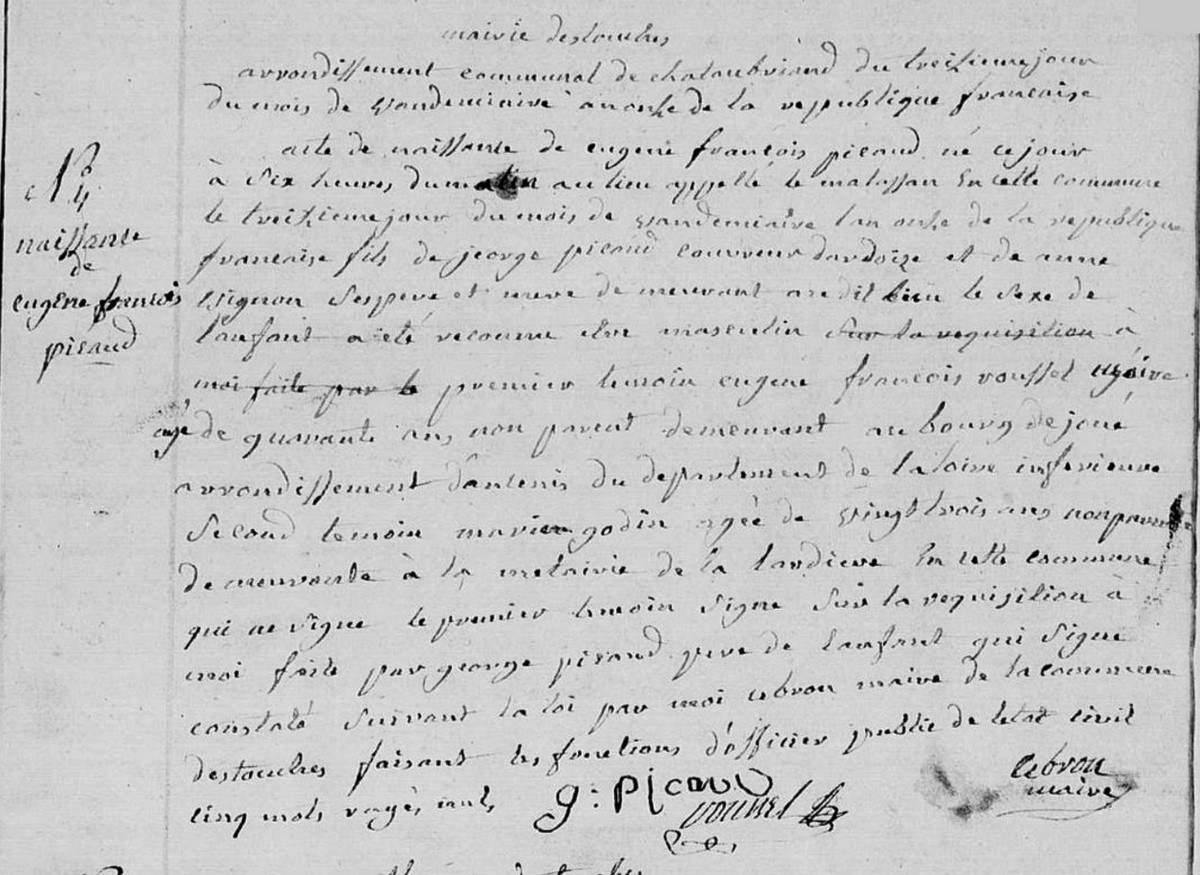 mairie destouches
arrondissement communal de chataubriand du treizieme jour
du mois de vandemiaire an onze de la reppublique francaise
acte de naissance de eugene françois picaud né ce jour
à six heures du matin au lieu appellé le matassan En cette commune
le treizieme jour du mois de vandemiaire lan onze de la republique
francaise fils de jeorge picaud couvreur dardoize et de anne
ses pere et mere demeurant au dit lieu le sexe de
lanfant a été reconnu etre masculin sur la requisition à
moi faite par le premier temoin eugene françois roussel
agé de quarante ans non parent demeurant au bourg de joué
arrondissement dancenis du departement de la loire inferieure
second temoin marie godin agée de vingt trois ans non parente
demeurante à la metairie de la lardiere En cette commune
qui ne signe le premier temoin signe sur la requisition à
moi faite par george picaud pere de lanfant qui signe
constaté suivant la loi par moi lebrou maire de la commune
destouches faisant les fonctions d'officier public de letat civil
cinq mots rayés nuls
g: picaud
roussel
lebrou
maire
N
4
naissance
de
eugene francois
picaud